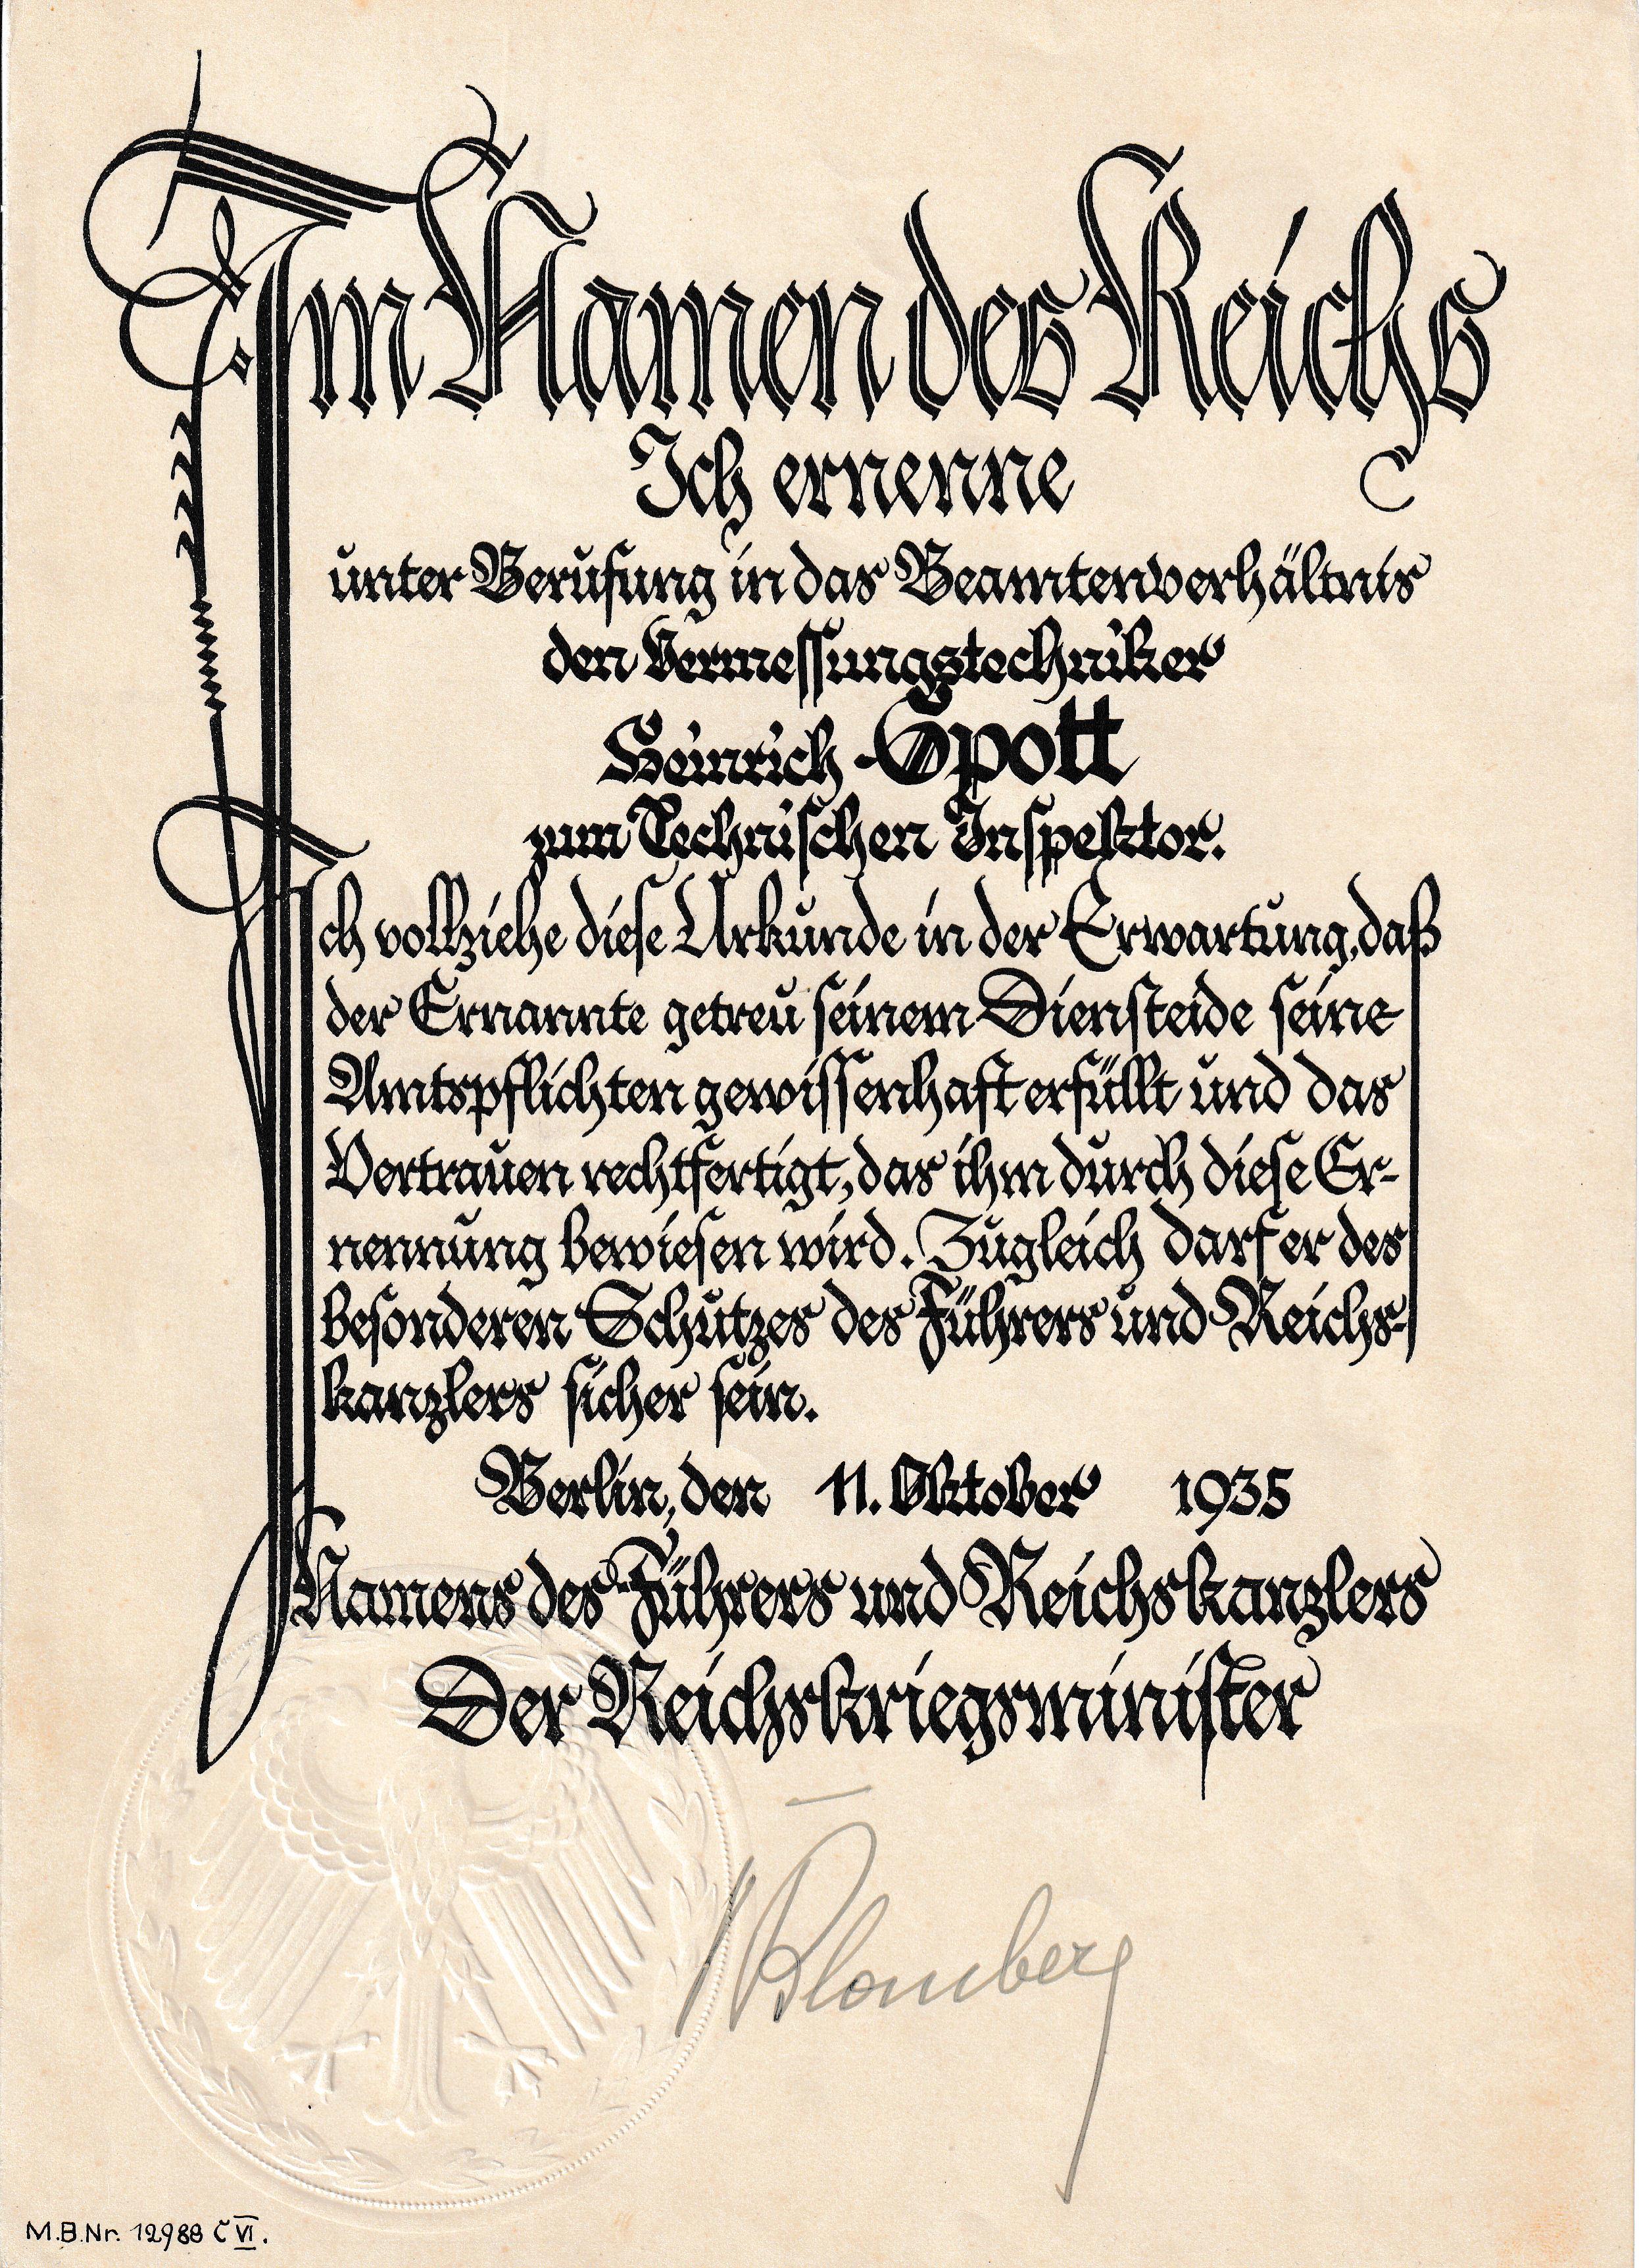 Im Namen des Reichs
Ich ernenne
unter Berufung in das Beamtenverhältnis
den Vermessungstechniker
Heinrich Spott
zum Technischen Inspektor.
Ich vollziehe diese Urkunde in der Erwartung, daß
der Ernannte getreu seinem Diensteide seine
Amtspflichten gewissenhaft erfüllt und das
Vertrauen rechtfertigt, das ihm durch diese Er-
nennung bewiesen wird. Zugleich darf er des
besonderen Schutzes des Führers und Reichs-
kanzlers sicher sein.
Berlin, den 11. Oktober 1935
Namens des Führers und Reichskanzlers
Der Reichskriegsminister
v Blomberg
M.B.Nr. 12988 C VI.